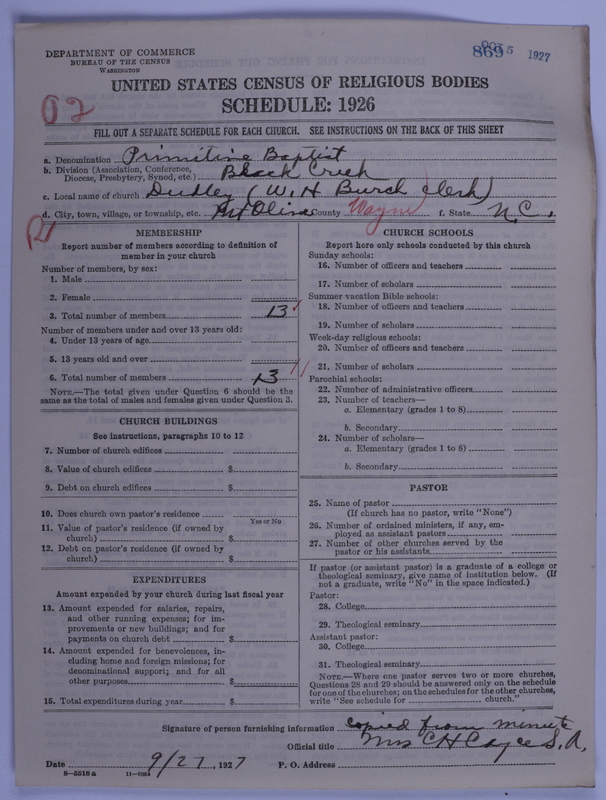 DEPARTMENT OF COMMERCE
BUREAU OF THE CENSUS
WASHINGTON
1927
UNITED STATES CENSUS OF RELIGIOUS BODIES
SCHEDULE: 1926
FILL OUT A SEPARATE SCHEDULE FOR EACH CHURCH. SEE INSTRUCTIONS ON THE BACK OF THIS SHEET
a. Denomination Primitive Baptist
b. Division (Association, Conference, Diocese, Presbytery, Synod, etc.) Black Creek
c. Local name of church Dudley (W. H Burch Clerk)
d. City, town, village, or township, etc. Mt Olive County Wayne f. State N.C.
MEMBERSHIP
Report number of members according to definition of
member in your church
Number of members, by sex:
1. Male
2. Female
3. Total number of members 13
Number of members under and over 13 years old:
4. Under 13 years of age
5. 13 years old and over
6. Total number of members 13
NOTE.—The total given under Question 6 should be the
same as the total of males and females given under Question 3.
CHURCH BUILDINGS
See instructions, paragraphs 10 to 12
7. Number of church edifices
8. Value of church edifices $
9. Debt on church edifices $
10. Does church own pastor's residence
Yes or No
11. Value of pastor's residence (if owned by
church) $
12. Debt on pastor's residence (if owned by
church) $
EXPENDITURES
Amount expended by your church during last fiscal year
13. Amount expended for salaries, repairs,
and other running expenses; for im-
provements or new buildings; and for
payments on church debt $
14. Amount expended for benevolences, in-
cluding home and foreign missions; for
denominational support; and for all
other purposes $
15. Total expenditures during year $
CHURCH SCHOOLS
Report here only schools conducted by this church
Sunday schools:
16. Number of officers and teachers
17. Number of scholars
Summer vacation Bible schools:
18. Number of officers and teachers
19. Number of scholars
Week-day religious schools:
20. Number of officers and teachers
21. Number of scholars
Parochial schools:
22. Number of administrative officers
23. Number of teachers—
a. Elementary (grades 1 to 8)
b. Secondary
24. Number of scholars—
a. Elementary (grades 1 to 8)
b. Secondary
PASTOR
25. Name of pastor
(If church has no pastor, write "None")
26. Number of ordained ministers, if any, em-
ployed as assistant pastors
27. Number of other churches served by the
pastor or his assistants
If pastor (or assistant pastor) is a graduate of a college or
theological seminary, give name of institution below. (If
not a graduate, write "No" in the space indicated.)
Pastor:
28. College
29. Theological seminary
Assistant pastor:
30. College
31. Theological seminary
NOTE.—Where one pastor serves two or more churches,
Questions 28 and 29 should be answered only on the schedule
for one of the churches; on the schedules for the other churches,
write "See schedule for church."
Signature of person furnishing information copied from minute
Official title Mrs C H Cayce S. A.
Date 9/27, 1927 P. O. Address
8—5516a 11—9054